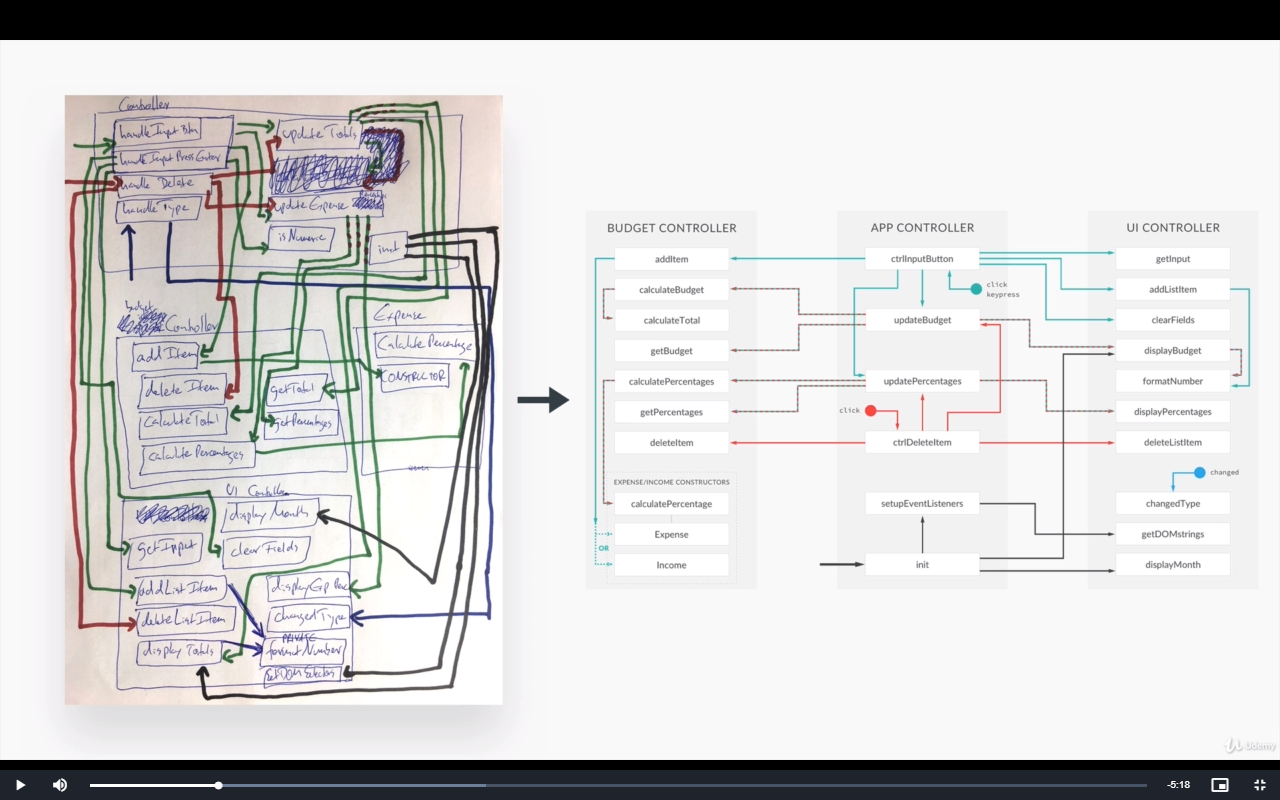 Controller
handle Input Btn
handle Input Press Enter
handle Delete
handle Type
update Totals
update Expense
isNumeric
init
budget
Controller
add Item
delete Item
Calculate Total
calculate Percentages
getTotal
getPercentages
Expense
Calculate Percentage
CONSTRUCTOR
UI Controller
display Month
getInput
clear Fields
addList Item
deleteList Item
display Totals
display Exp Perc
changed Type
PRIVATE
format Number
BUDGET CONTROLLER
addItem
calculateBudget
calculateTotal
getBudget
calculatePercentages
getPercentages
deleteItem
EXPENSE/INCOME CONSTRUCTORS
calculatePercentage
Expense
OR
Income
APP CONTROLLER
ctrlInputButton
click
keypress
updateBudget
updatePercentages
click
ctrlDeleteItem
setupEventListeners
init
UI CONTROLLER
getInput
addListItem
clearFields
displayBudget
formatNumber
displayPercentages
deleteListItem
changed
changedType
getDOMstrings
displayMonth
Udemy
-5:18